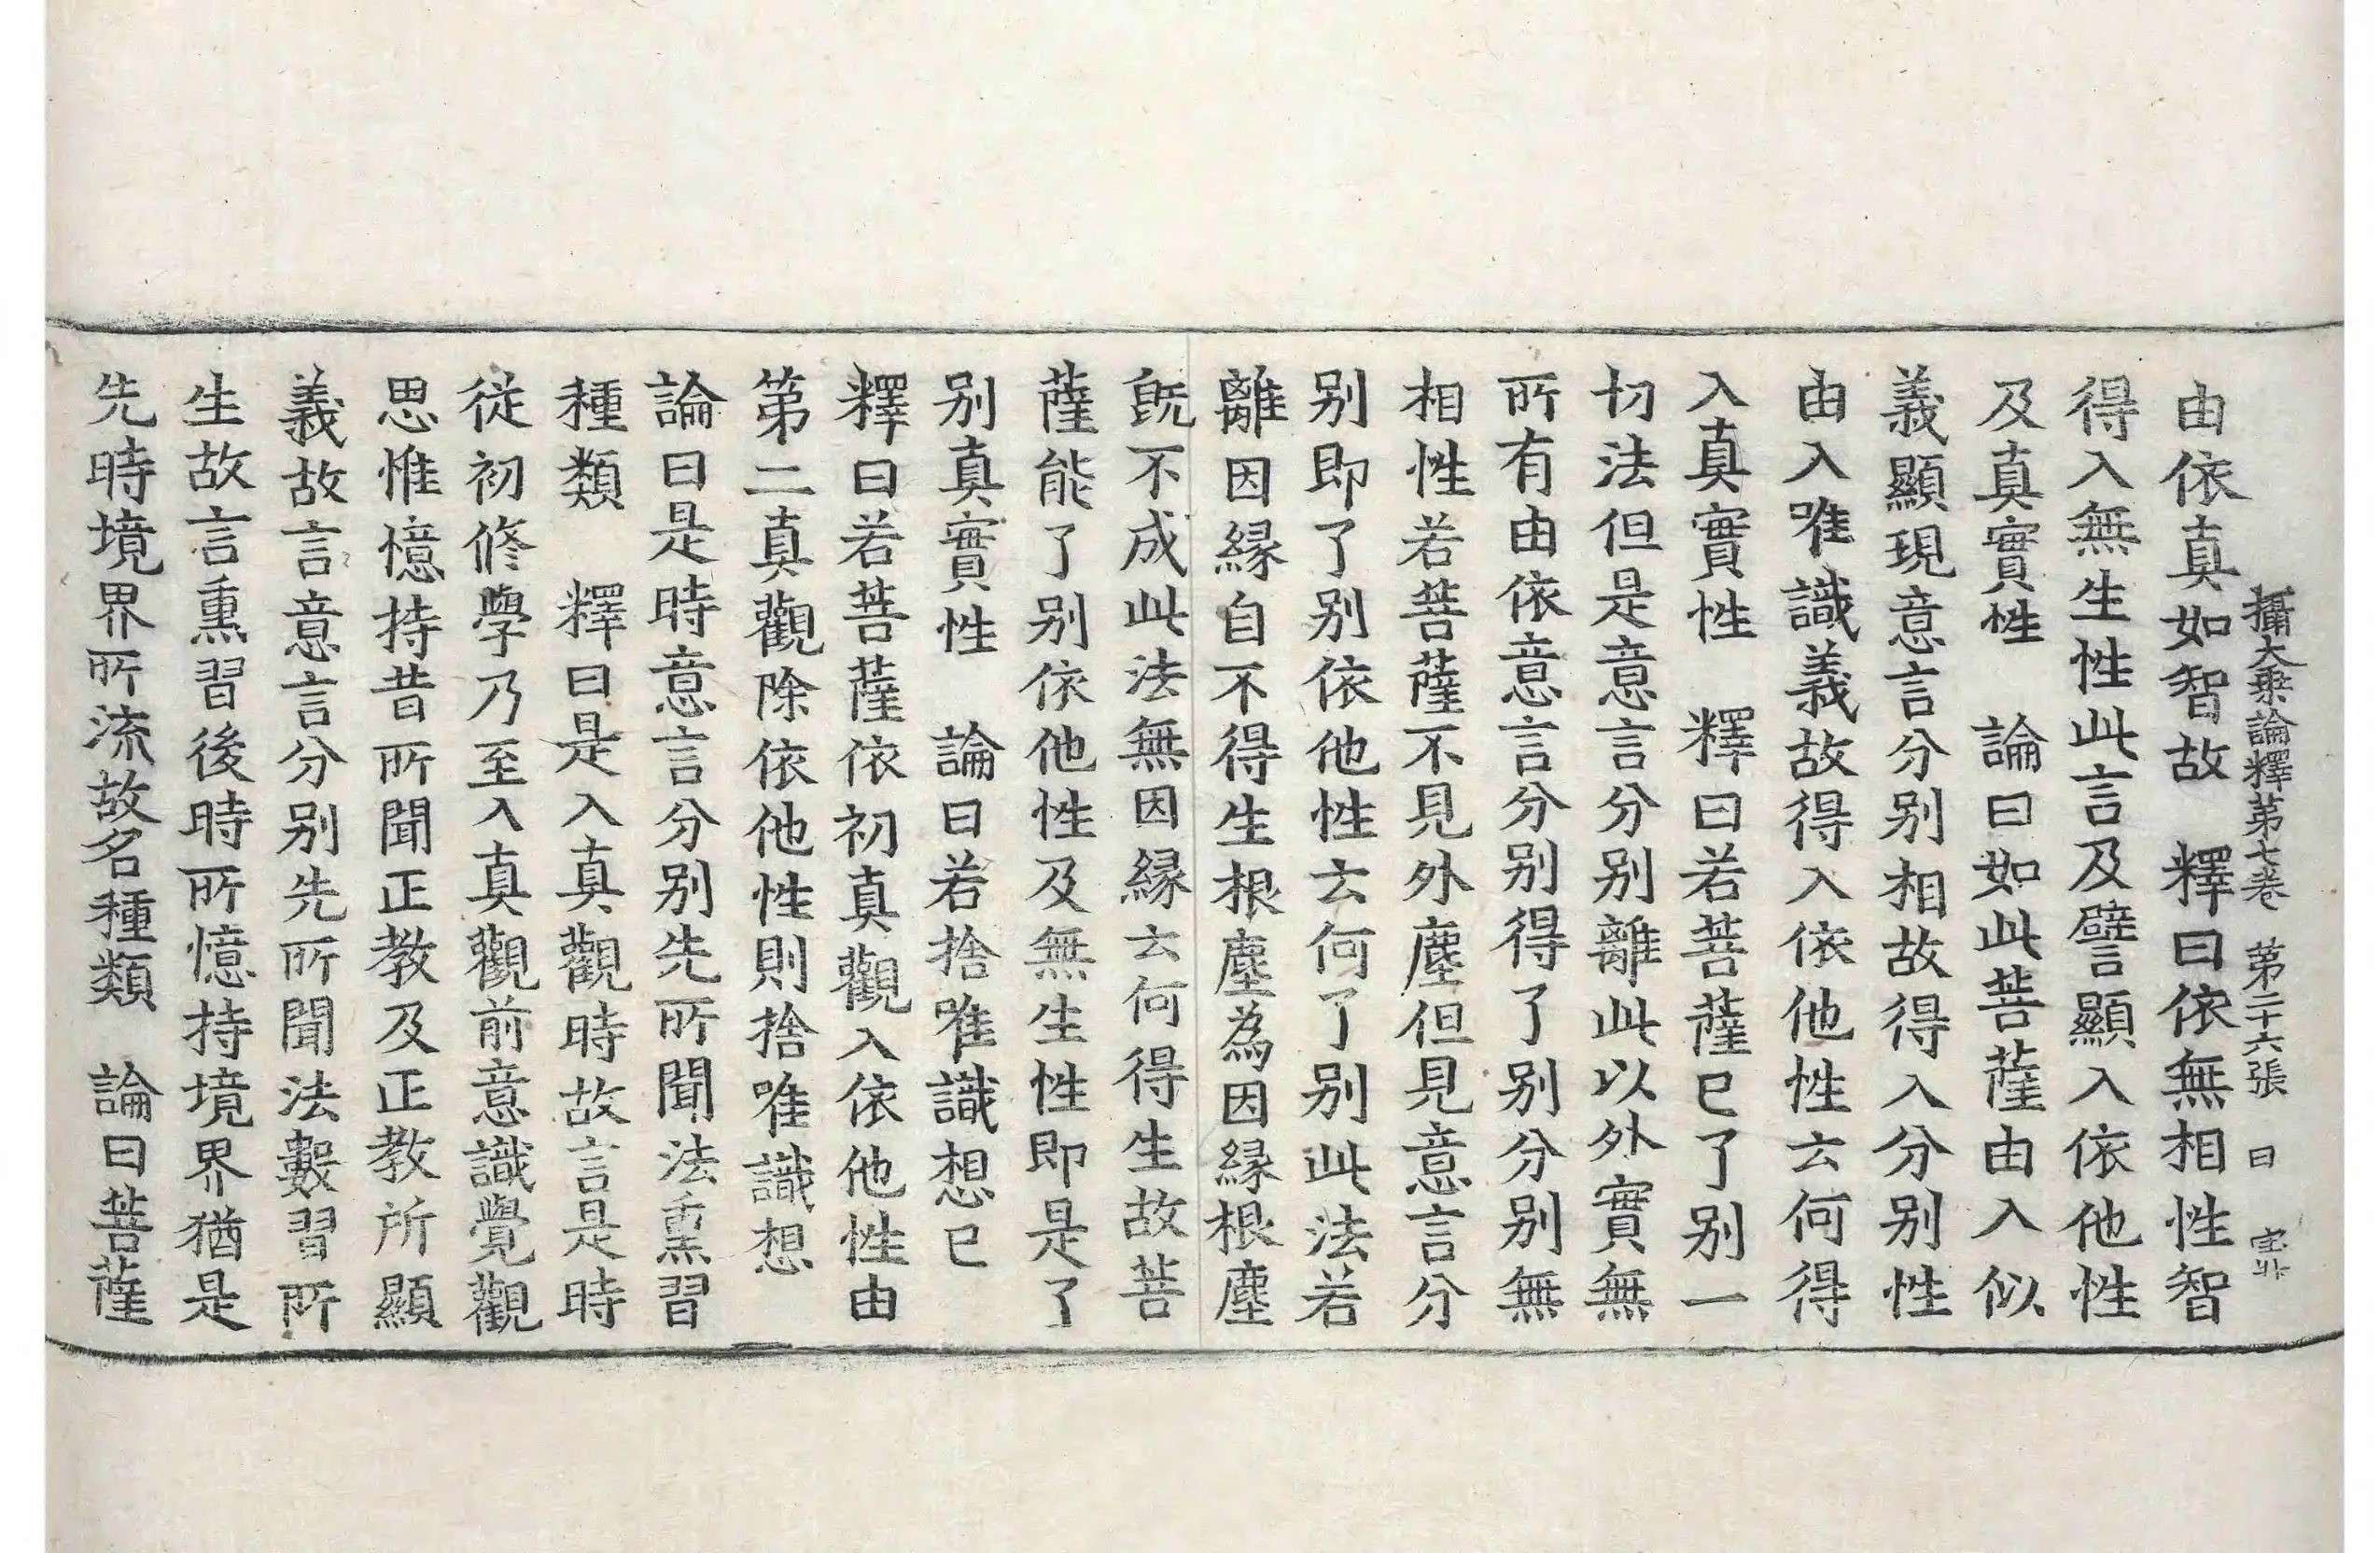 攝大乘論釋第七卷　第二十六張　曰
由依真如智故　釋曰依無相性智
得入無生性此言及譬顯入依他性
及真實性　論曰如此菩薩由入似
義顯現意言分别相故得入分别性
由入唯識義故得入依他性云何得
入真實性　釋曰若菩薩已了别一
切法但是意言分别離此以外實無
所有由依意言分别得了别分别無
相性若菩薩不見外塵但見意言分
别即了别依他性云何了别此法若
離因縁自不得生根塵為因縁根塵
旣不成此法無因縁云何得生故菩
薩能了别依他性及無生性即是了
别真實性　論曰若捨唯識想已
釋曰若菩薩依初真觀入依他性由
第二真觀除依他性則捨唯識想
論曰是時意言分别先所聞法熏習
種類　釋曰是入真觀時故言是時
從初修學乃至入真觀前意識覺觀
思惟憶持昔所聞正教及正教所顯
義故言意言分别先所聞法數習所
生故言熏習後時所憶持境界猶是
先時境界所流故名種類　論曰菩薩